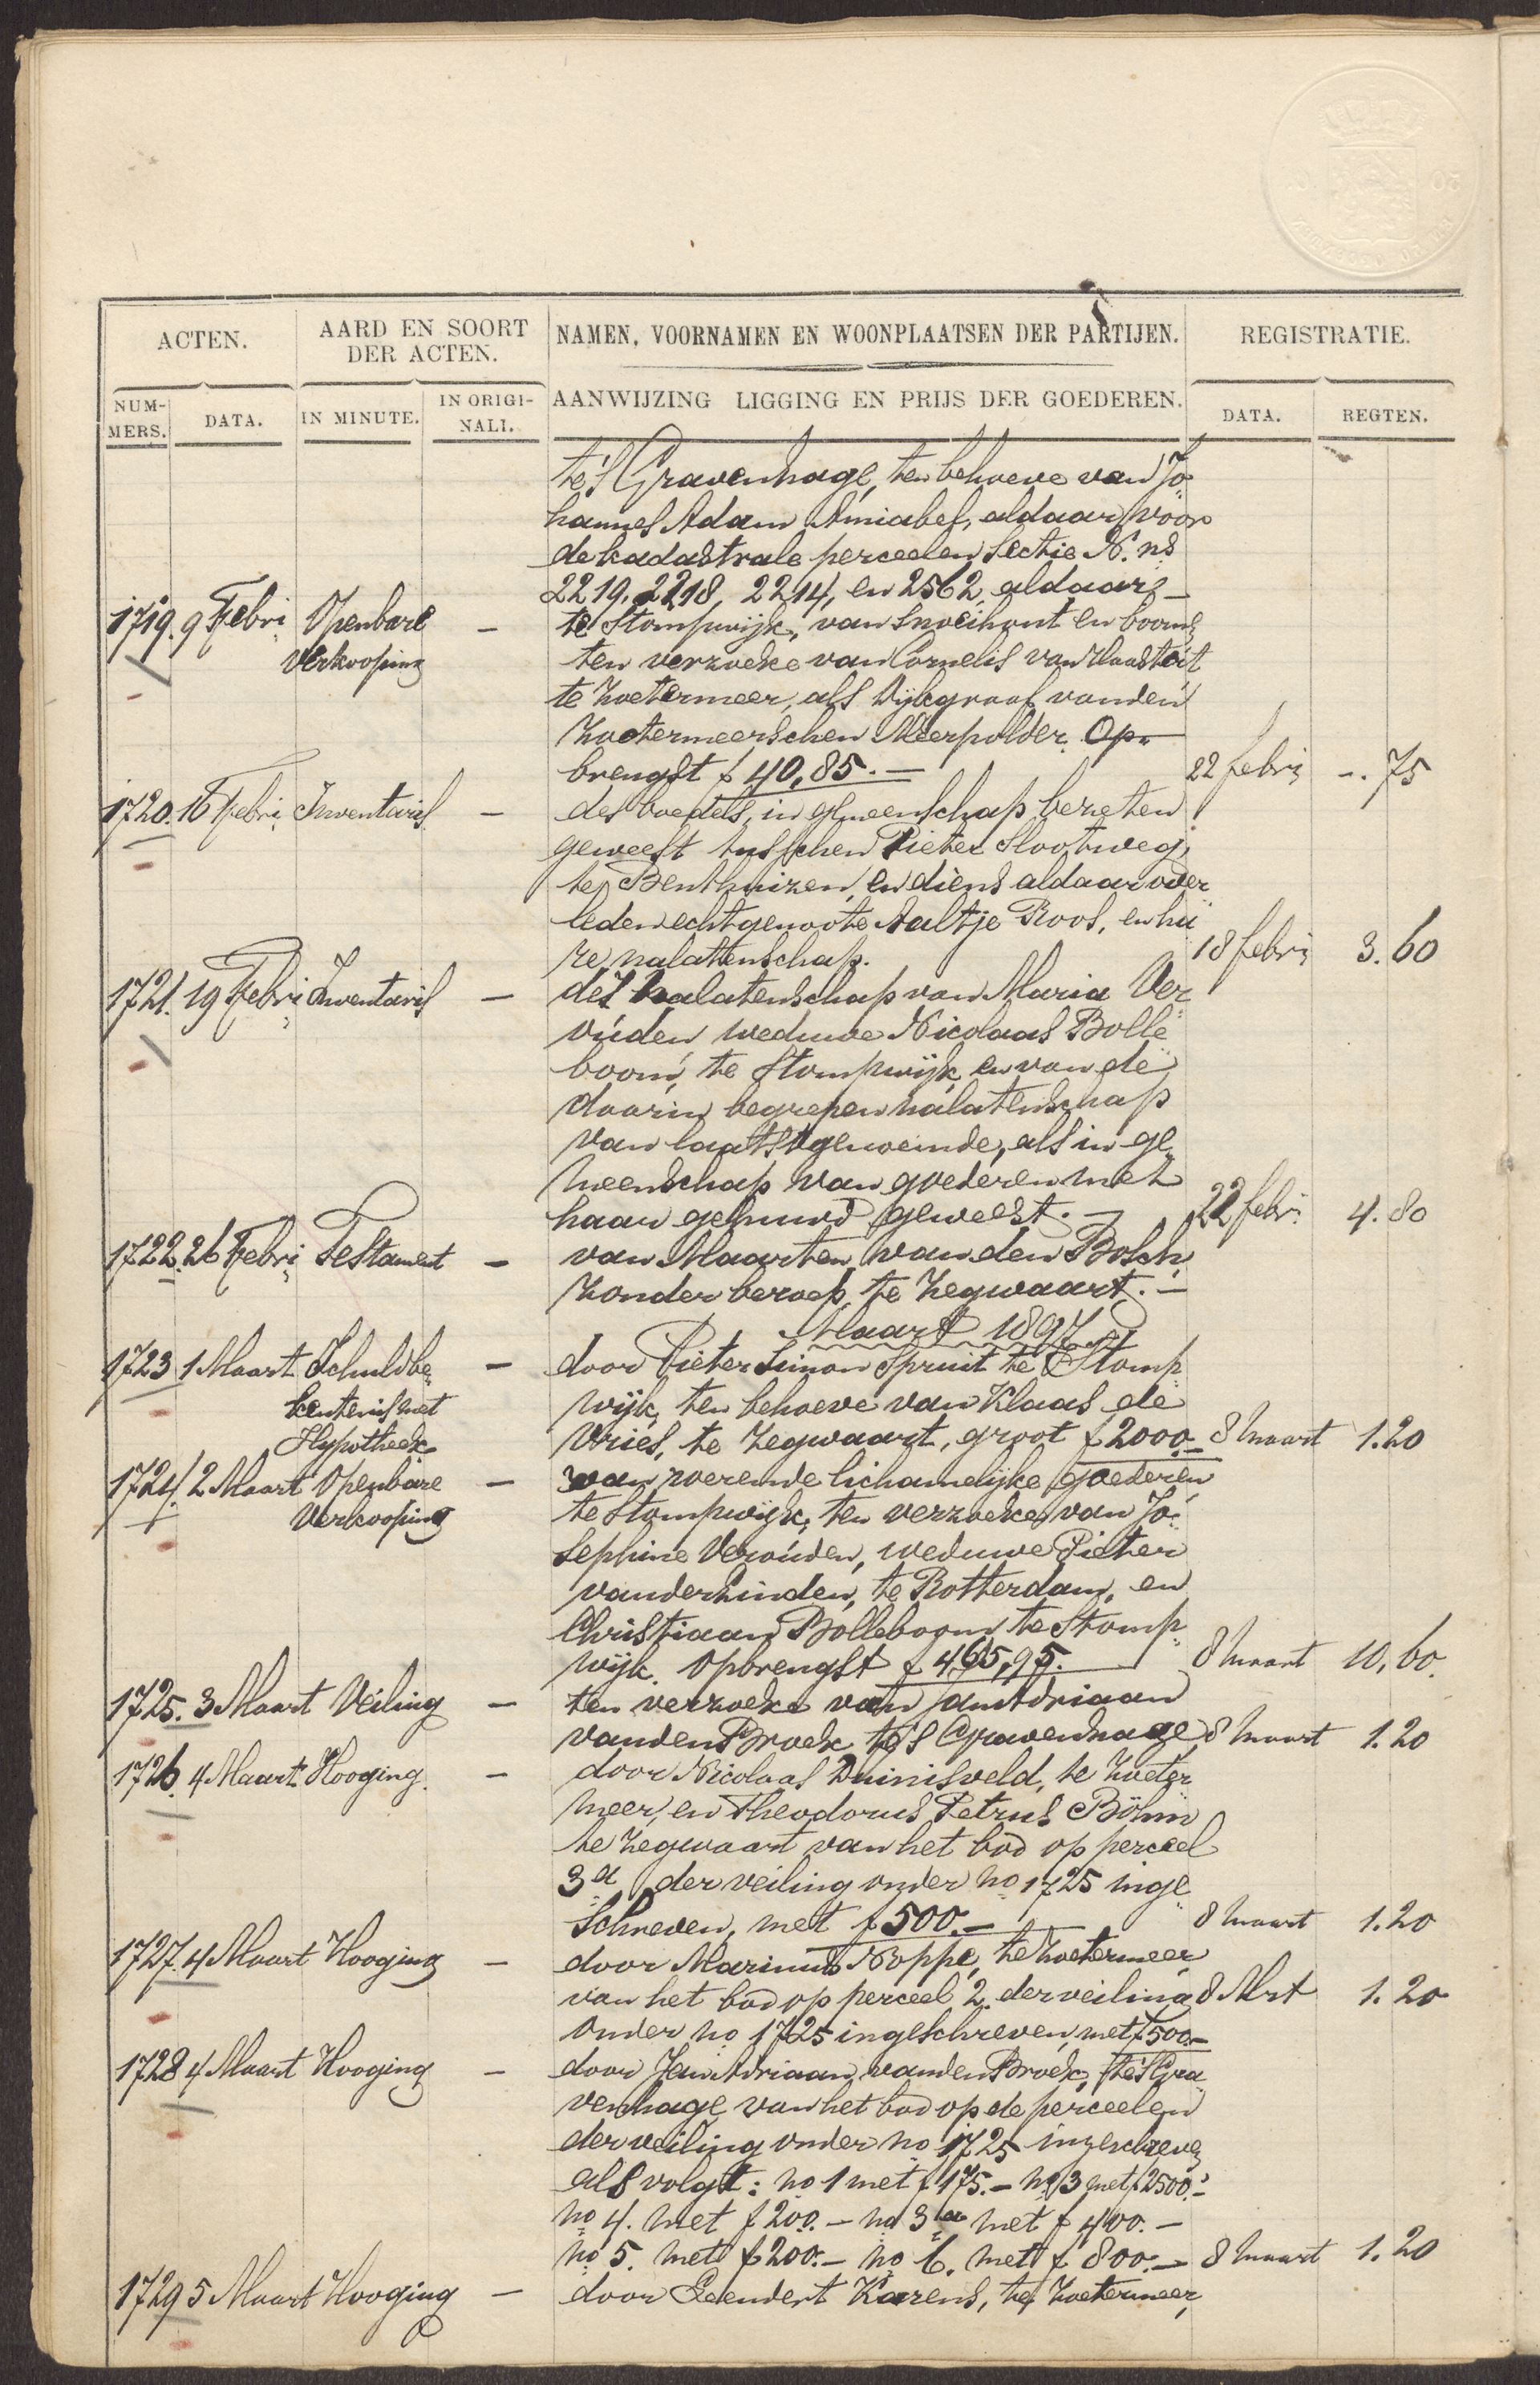 ACTEN.
AARD EN SOORT
DER ACTEN.
NAMEN, VOORNAMEN EN WOONPLAATSEN DER PARTIJEN.
REGISTRATIE.
NUM-
MERS.
DATA.
IN MINUTE.
IN ORIGI-
NALI.
AANWIJZING LIGGING EN PRIJS DER GOEDEREN.
DATA.
REGTEN.
te 's Gravenhage, ten behoeve van Jo-
hannes Adam Amiabel, aldaar, voor
de kadastrale perceelen Sectie N. ns
2219, 2218, 2214, en 2562, aldaar. —
1719. 9 Febri Openbare — te Stompwijk, van snoeihout en boomen
Verkooping ten verzoeke van Cornelis van
te Zoetermeer, als Dijkgraaf van den
Zoetermeerschen Meerpolder. Op-
brengst f 40,85. — 22 febri -. 75
1720. 16 Febri Inventaris — des boedels, in gemeenschap bezeten
geweest tusschen Pieter Slootweg,
te Benthuizen, en diens aldaar over
leden echtgenoote Aaltje Roos, en hu
re nalatenschap. 18 febri 3. 60
1721. 19 Febri Inventaris — des nalatenschap van Maria Ver
ouden, weduwe Nicolaas Bolle
boom, te Stompwijk, en van de
daarin begrepen nalatenschap
van laatstgenoemde, als in ge-
meenschap van goederen met
haar gehuwd geweest. — 22 febr. 4. 80
1722. 26 Febri Testament — van Maarten van den Bosch,
zonder beroep, te Zegwaart. —
Maart 1897
1723 1 Maart Schuldbe- — door Pieter Simon Spruit te Stomp
kentenis met wijk, ten behoeve van Klaas de
Hypotheek Vries, te Zegwaart, groot f 2000.- 8 Maart 1.20
1724. 2 Maart Openbare — van roerende lichamelijke goederen
Verkooping te Stompwijk, ten verzoeke van Jo-
sephine Verouden, weduwe Pieter
van der Linden, te Rotterdam, en
Christiaan Bolleboom te Stomp
wijk. Opbrengst f 465,95. 8 Maart 10. 60.
1725. 3 Maart Veiling — ten verzoeke van Jan Adriaan
van den Broek te 's Gravenhage 8 Maart 1.20
1726. 4 Maart Hooging. — door Nicolaas Duinisveld, te Zoeter
meer, en Theodorus Petrus Böhm
te Zegwaart van het bod op perceel
3a der veiling onder no 1725 inge
schreven, met f 500.- 8 Maart 1.20
1727. 4 Maart Hooging — door Marinus Noppe, te Zoetermeer,
van het bod op perceel 2. der veiling 8 Mrt 1.20
onder no 1725 ingeschreven, met f 500.-
1728 4 Maart Hooging — door Jan Adriaan van den Broek, te 's Gra
venhage van het bod op de perceelen
der veiling onder no 1725 ingeschreven
als volgt: no 1 met f 175.- no 3 met f 2500.-
no 4. met f 200.- no 3a met f 400.-
no 5. met f 200.- no 6. met f 800.- 8 Maart 1.20
1729 5 Maart Hooging — door Leendert Karens, te Zoetermeer,